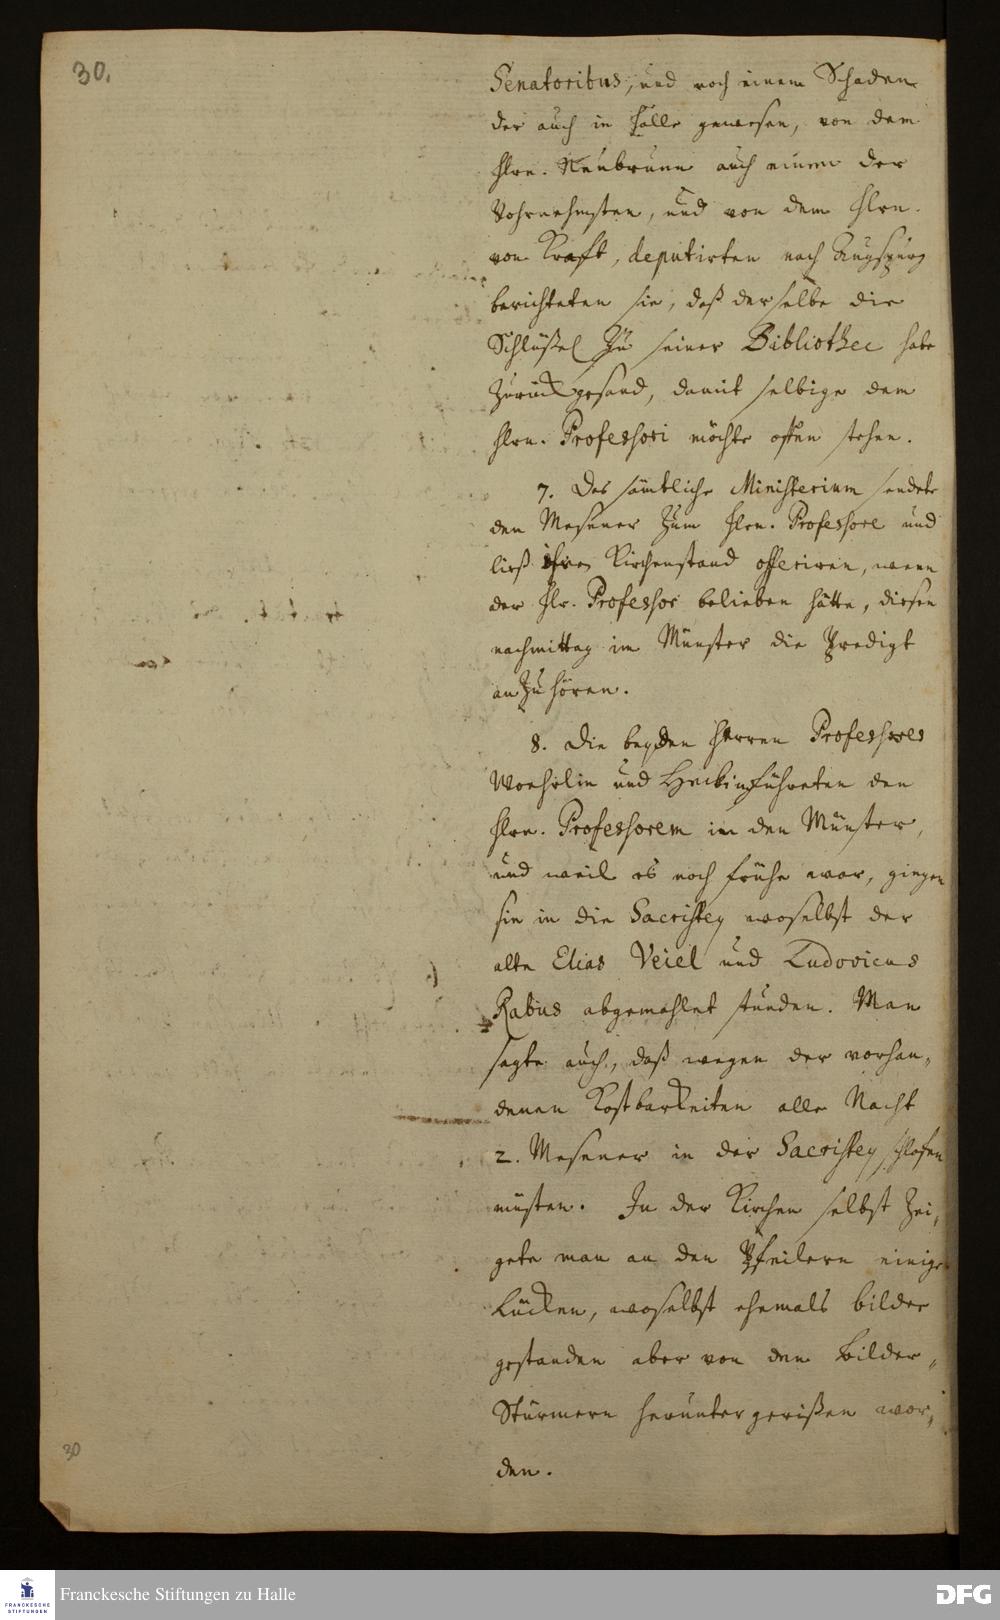 30.
Senatoribus, und noch einem Schaden
der auch in Halle gewesen, von dem
Hrn. Neubrunn auch einem der
Vohrnehmsten, und von dem Hrn.
von Kraft, deputirten nach Augspurg
berichteten sie, daß derselbe die
Schlüßel zu seiner Bibliothec habe
zurückgesand, damit selbige dem
Hrn. Professori möchte offen stehen.
7. Das sämtliche Ministerium sendete
den Mesener zum Hrn. Professore und
ließ ihren Kirchenstand offeriren, wenn
der Hr. Professor belieben hätte, diesen
nachmittag im Münster die Predigt
anzuhören.
8. Die beyden Herren Professores
Woehrlin und führeten den
Hrn. Professorem in den Münster,
und weil es noch frühe war, gingen
sie in die Sacristey woselbst der
alte Elias Veiel und Ludovicus
Rabus abgemahlet stunden. Man
sagte auch, daß wegen der vorhan„
denen Kostbarkeiten alle Nacht
2. Mesener in der Sacristey schlafen
müsten. In der Kirchen selbst zei„
gete man an den Pfeilern einige
Lücken, woselbst ehemals bilder
gestanden aber von den Bilder„
Stürmern heruntergerißen wor„
den.
30
FRANCKESCHE
STIFTUNGEN
Franckesche Stiftungen zu Halle
DFG